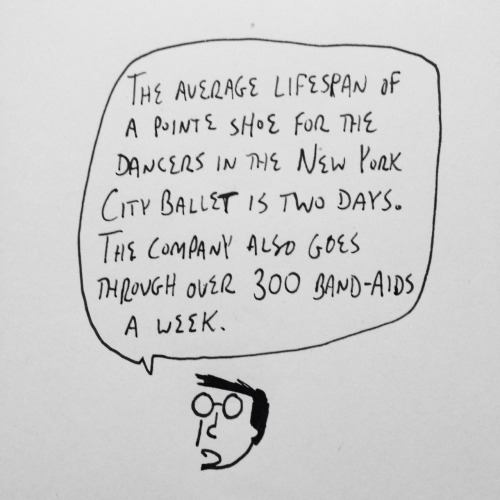 THE AVERAGE LIFESPAN OF
A POINTE SHOE FOR THE
DANCERS IN THE NEW YORK
CITY BALLET IS TWO DAYS.
THE COMPANY ALSO GOES
THROUGH OVER 300 BAND-AIDS
A WEEK.